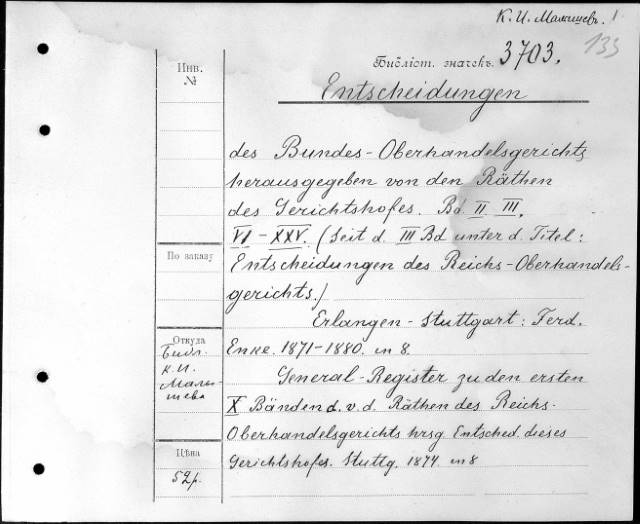 К. И. Малышевъ. 1
133
Библіот. значекъ. 3703.
Entscheidungen
des Bundes-Oberhandelsgerichts
herausgegeben von den Räthen
des Gerichtshofes. Bd. II III,
VI–XXV. (Seit d. III Bd unter d. Titel:
Entscheidungen des Reichs-Oberhandels-
gerichts.)
Erlangen-Stuttgart: Ferd.
Enke. 1871–1880. in 8.
General-Register zu den ersten
X Bänden d. v. d. Räthen des Reichs-
Oberhandelsgerichts hrsg. Entsched. dieses
Gerichtshofes. Stuttg. 1874. in 8
Инв.
№
По заказу
Откуда
Библ.
К. И.
Малы-
шева
Цѣна
52р.